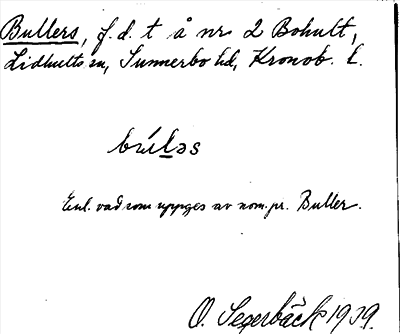 Bullers, f. d. t å nr 2 Bohult,
Lidhults sn, Sunnerbo hd, Kronob. l.
búləs
Enl. vad som uppges av nom. pr. Buller.
O. Segerbäck 1939.